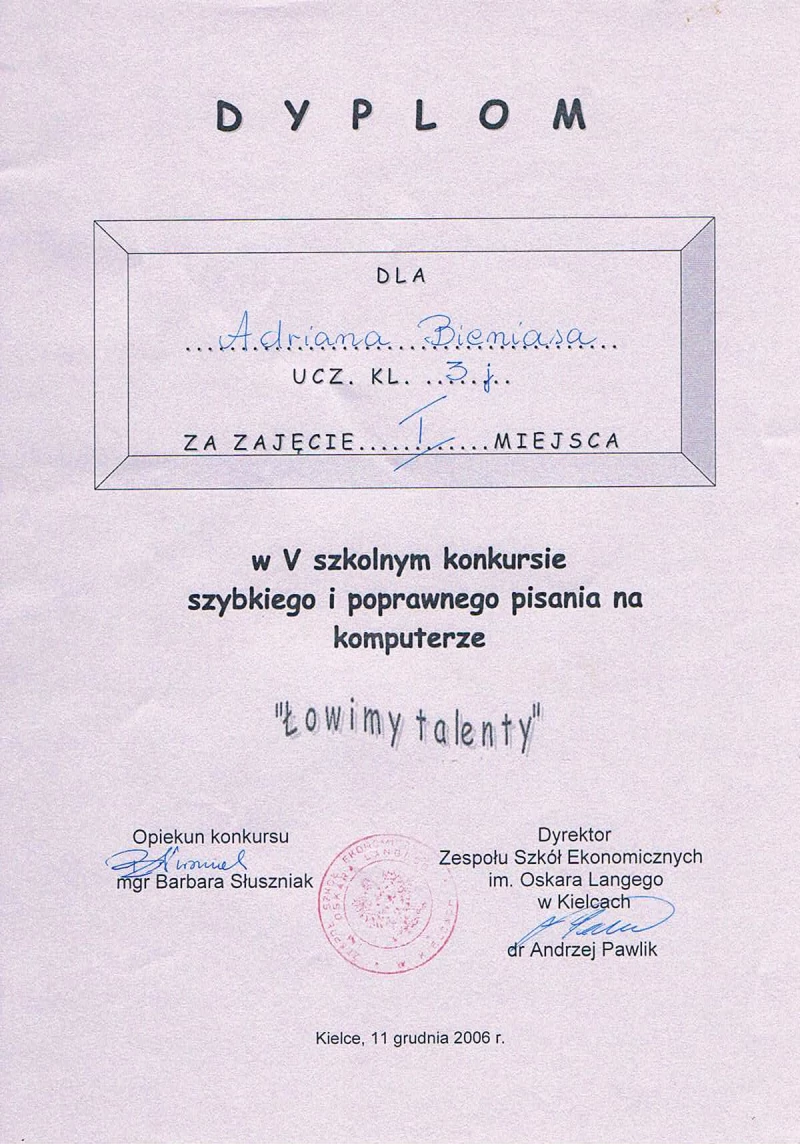 DYPLOM
DLA
...Adriana...Bieniasa...
UCZ. KL. ...3.j..
ZA ZAJĘCIE......I......MIEJSCA
w V szkolnym konkursie
szybkiego i poprawnego pisania na
komputerze
"Łowimy talenty"
Opiekun konkursu
mgr Barbara Słuszniak
Dyrektor
Zespołu Szkół Ekonomicznych
im. Oskara Langego
w Kielcach
dr Andrzej Pawlik
Kielce, 11 grudnia 2006 r.